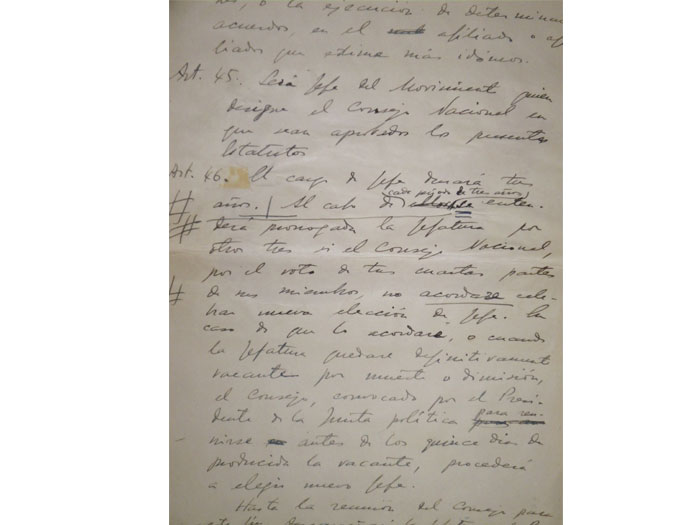 nes, o la ejecución de determinados
acuerdos, en el afiliado o afi-
liados que estime más idóneos.
Art. 45. Será Jefe del Movimiento quien
designe el Consejo Nacional en
que sean aprobados los presentes
Estatutos
Art. 46. El cargo de Jefe durará tres
años. Al cabo de cada período de tres años, enten-
derá prorrogada la Jefatura por
otros tres si el Consejo Nacional,
por el voto de tres cuartas partes
de sus miembros, no acordare cele-
brar nueva elección de Jefe. En
caso de que la acordare, o cuando
la Jefatura quedare definitivamente
vacante por muerte o dimisión,
el Consejo, convocado por el Presi-
dente de la Junta política para reu-
nirse antes de los quince días de
producida la vacante, procederá
a elegir nuevo Jefe.
Hasta la reunión del Consejo para